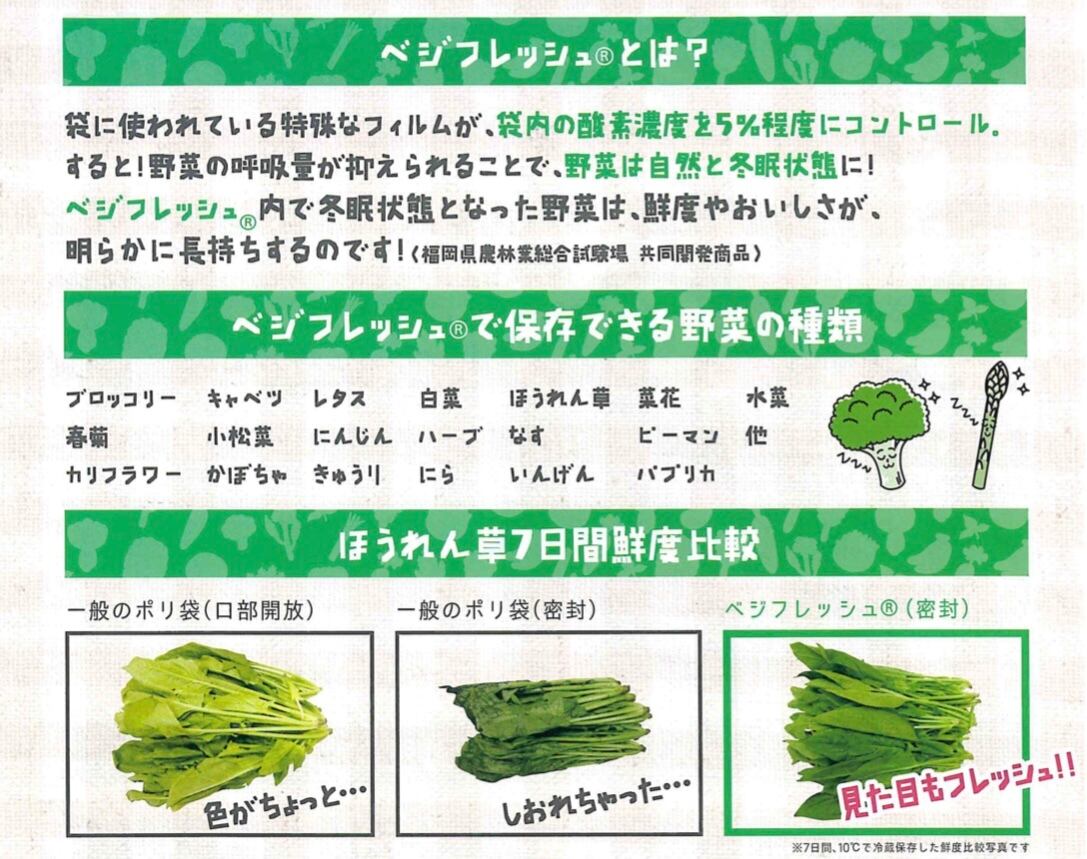 ベジフレッシュ®とは?
袋に使われている特殊なフィルムが、袋内の酸素濃度を5%程度にコントロール。
すると!野菜の呼吸量が抑えられることで、野菜は自然と冬眠状態に!
ベジフレッシュ®内で冬眠状態となった野菜は、鮮度やおいしさが、
明らかに長持ちするのです!(福岡県農林業総合試験場 共同開発商品)
ベジフレッシュ®で保存できる野菜の種類
ブロッコリー キャベツ レタス 白菜 ほうれん草 菜花 水菜
春菊 小松菜 にんじん ハーブ なす ピーマン 他
カリフラワー かぼちゃ きゅうり にら いんげん パプリカ
ほうれん草7日間鮮度比較
一般のポリ袋(口部開放) 一般のポリ袋(密封) ベジフレッシュ®(密封)
色がちょっと… しおれちゃった… 見た目もフレッシュ!!
※7日間、10℃で冷蔵保存した鮮度比較写真です